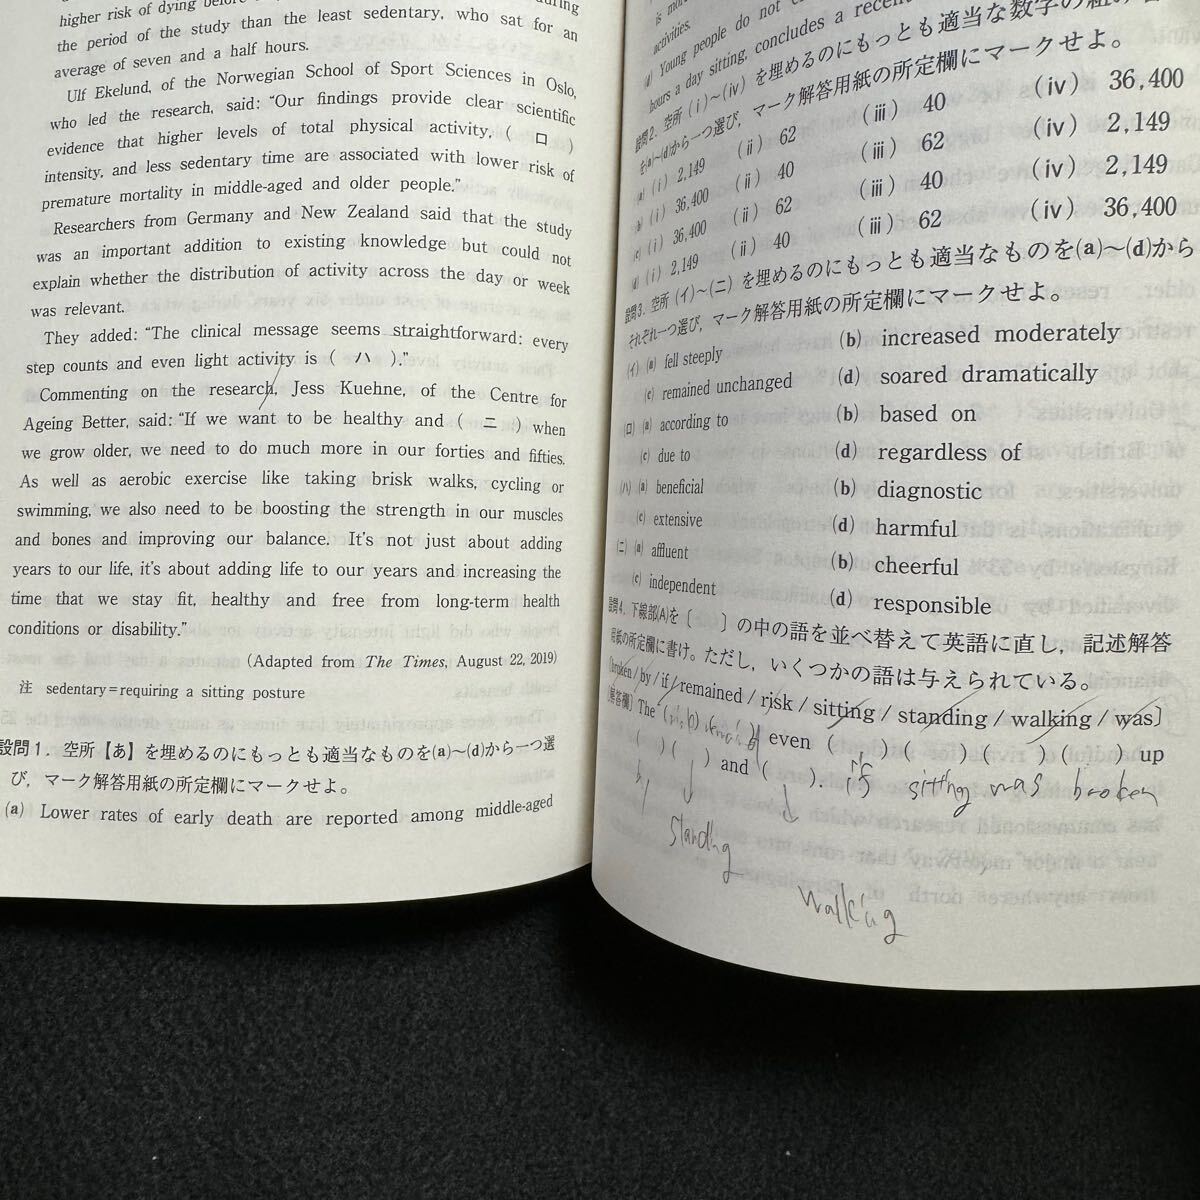 higher risk of dying before during
the period of the study than the least sedentary, who sat for an
average of seven and a half hours.
Ulf Ekelund, of the Norwegian School of Sport Sciences in Oslo,
who led the research, said: “Our findings provide clear scientific
evidence that higher levels of total physical activity, ( ロ )
intensity, and less sedentary time are associated with lower risk of
premature mortality in middle-aged and older people.”
Researchers from Germany and New Zealand said that the study
was an important addition to existing knowledge but could not
explain whether the distribution of activity across the day or week
was relevant.
They added: “The clinical message seems straightforward: every
step counts and even light activity is ( ハ ).”
Commenting on the research, Jess Kuehne, of the Centre for
Ageing Better, said: “If we want to be healthy and ( ニ ) when
we grow older, we need to do much more in our forties and fifties.
As well as aerobic exercise like taking brisk walks, cycling or
swimming, we also need to be boosting the strength in our muscles
and bones and improving our balance. It's not just about adding
years to our life, it's about adding life to our years and increasing the
time that we stay fit, healthy and free from long-term health
conditions or disability.”
(Adapted from The Times, August 22, 2019)
注 sedentary=requiring a sitting posture
設問1. 空所【あ】を埋めるのにもっとも適当なものを(a)〜(d)から一つ選
び, マーク解答用紙の所定欄にマークせよ。
(a) Lower rates of early death are reported among middle-aged
is more
activities.
(d) Young people do not
hours a day sitting, concludes a recent
設問2. 空所(i)〜(iv)を埋めるのにもっとも適当な数字の組み合
を(a)〜(d)から一つ選び, マーク解答用紙の所定欄にマークせよ。
(a) (i) 2,149 (ii) 62 (iii) 40 (iv) 36,400
(b) (i) 36,400 (ii) 40 (iii) 62 (iv) 2,149
(c) (i) 36,400 (ii) 62 (iii) 40 (iv) 2,149
(d) (i) 2,149 (ii) 40 (iii) 62 (iv) 36,400
設問3. 空所(イ)〜(ニ)を埋めるのにもっとも適当なものを(a)〜(d)から
それぞれ一つ選び, マーク解答用紙の所定欄にマークせよ。
(イ) (a) fell steeply (b) increased moderately
(c) remained unchanged (d) soared dramatically
(ロ) (a) according to (b) based on
(c) due to (d) regardless of
(ハ) (a) beneficial (b) diagnostic
(c) extensive (d) harmful
(ニ) (a) affluent (b) cheerful
(c) independent (d) responsible
設問4. 下線部(A)を〔 〕の中の語を並べ替えて英語に直し, 記述解答
用紙の所定欄に書け。ただし, いくつかの語は与えられている。
〔broken / by / if / remained / risk / sitting / standing / walking / was〕
〔解答欄〕The (risk) (remained) even ( ) ( ) ( ) ( ) up
( ) ( ) and ( ).
if sitting was broken
by
standing
walking